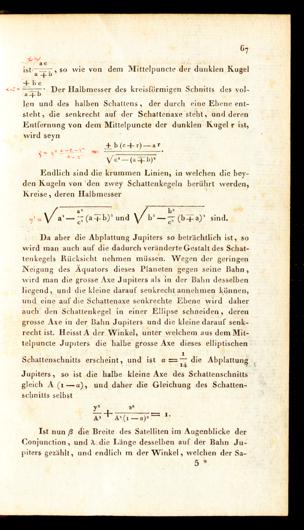 67
ist ac/(a ∓ b), so wie von dem Mittelpuncte der dunklen Kugel
± bc/(a ∓ b). Der Halbmesser des kreisförmigen Schnitts des vol-
len und des halben Schattens, der durch eine Ebene ent-
steht, die senkrecht auf der Schattenaxe steht, und deren
Entfernung von dem Mittelpuncte der dunklen Kugel r ist,
wird seyn
(± b (c + r) — a r)/√(c² — (a ∓ b)²)
Endlich sind die krummen Linien, in welchen die bey-
den Kugeln von den zwey Schattenkegeln berührt werden,
Kreise, deren Halbmesser
√(a² — a²/c² (a ∓ b)²) und √(b² — b²/c² (b ∓ a)² sind.
Da aber die Abplattung Jupiters so beträchtlich ist, so
wird man auch auf die dadurch veränderte Gestalt des Schat-
tenkegels Rücksicht nehmen müssen. Wegen der geringen
Neigung des Äquators dieses Planeten gegen seine Bahn,
wird man die grosse Axe Jupiters als in der Bahn desselben
liegend, und die kleine darauf senkrecht annehmen können,
und eine auf die Schattenaxe senkrechte Ebene wird daher
auch den Schattenkegel in einer Ellipse schneiden, deren
grosse Axe in der Bahn Jupiters und die kleine darauf senk-
recht ist. Heisst A der Winkel, unter welchem aus dem Mit-
telpuncte Jupiters die halbe grosse Axe dieses elliptischen
Schattenschnitts erscheint, und ist α = 1/14 die Abplattung
Jupiters, so ist die halbe kleine Axe des Schattenschnitts
gleich A (1 — α), und daher die Gleichung des Schatten-
schnitts selbst
y²/A² + z²/(A² (1 — α)²) = 1.
Ist nun β die Breite des Satelliten im Augenblicke der
Conjunction, und λ die Länge desselben auf der Bahn Ju-
piters gezählt, und endlich m der Winkel, welchen der Sa-
5 *